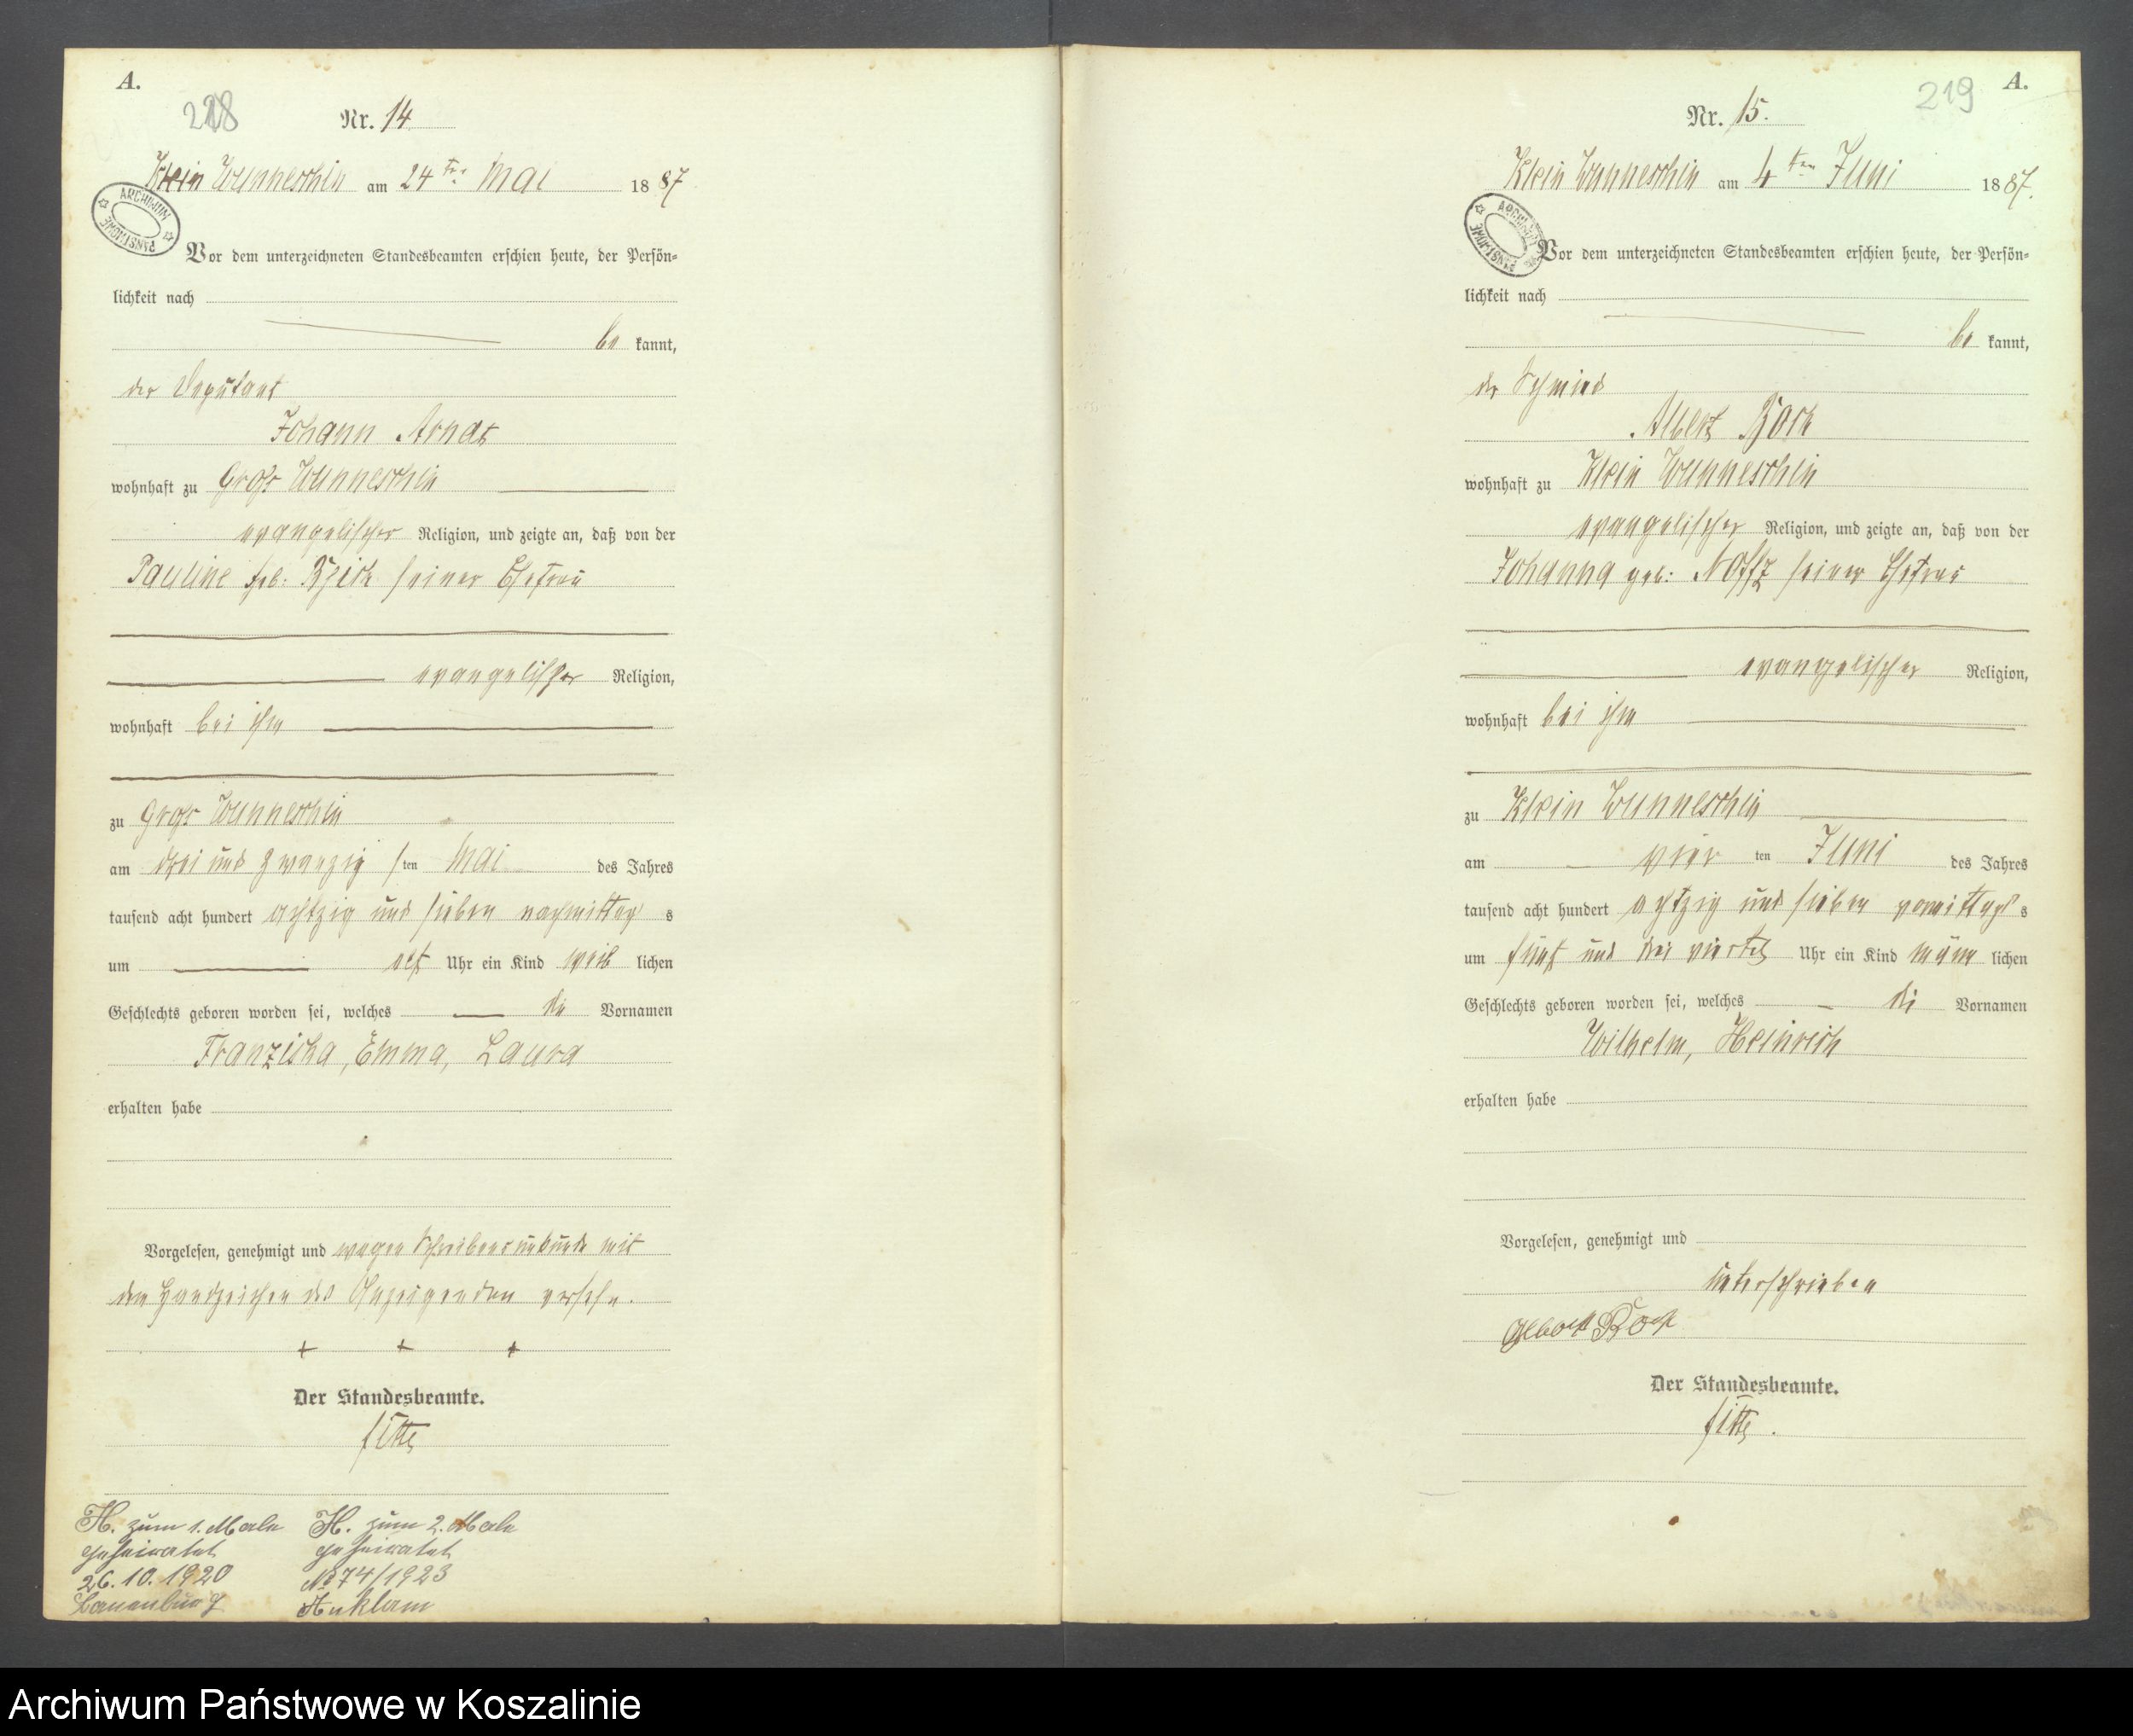 A.
218
Nr. 14
Klein Wunneschin am 24ten Mai 1887
ARCHIWUM PAŃSTWOWE
Vor dem unterzeichneten Standesbeamten erschien heute, der Persön-
lichkeit nach
be kannt,
der Deputant
Johann Arndt
wohnhaft zu Groß Wunneschin
evangelischer Religion, und zeigte an, daß von der
Pauline geb. seiner Ehefrau
evangelischer Religion,
wohnhaft bei ihm
zu Groß Wunneschin
am drei und zwanzigsten Mai des Jahres
tausend acht hundert achtzig und sieben nachmittags
um elf Uhr ein Kind weiblichen
Geschlechts geboren worden sei, welches die Vornamen
Franziska, Emma, Laura
erhalten habe
Vorgelesen, genehmigt und wegen Schreibensunkunde mit
den Handzeichen des Anzeigenden versehn.
+ + +
Der Standesbeamte.
H. zum 1. Male
geheiratet
26.10.1920
Lauenburg
H. zum 2. Male
geheiratet
No 74/1923
Anklam
A.
219
Nr. 15.
Klein Wunneschin am 4ten Juni 1887.
ARCHIWUM PAŃSTWOWE
Vor dem unterzeichneten Standesbeamten erschien heute, der Persön-
lichkeit nach
be kannt,
der Schmied
Albert Bock
wohnhaft zu Klein Wunneschin
evangelischer Religion, und zeigte an, daß von der
Johanna geb: Noffz seiner Ehefrau
evangelischer Religion,
wohnhaft bei ihm
zu Klein Wunneschin
am vierten Juni des Jahres
tausend acht hundert achtzig und sieben vormittags
um fünf und drei viertel Uhr ein Kind männlichen
Geschlechts geboren worden sei, welches die Vornamen
Wilhelm, Heinrich
erhalten habe
Vorgelesen, genehmigt und
unterschrieben
Albert Bock
Der Standesbeamte.
Archiwum Państwowe w Koszalinie